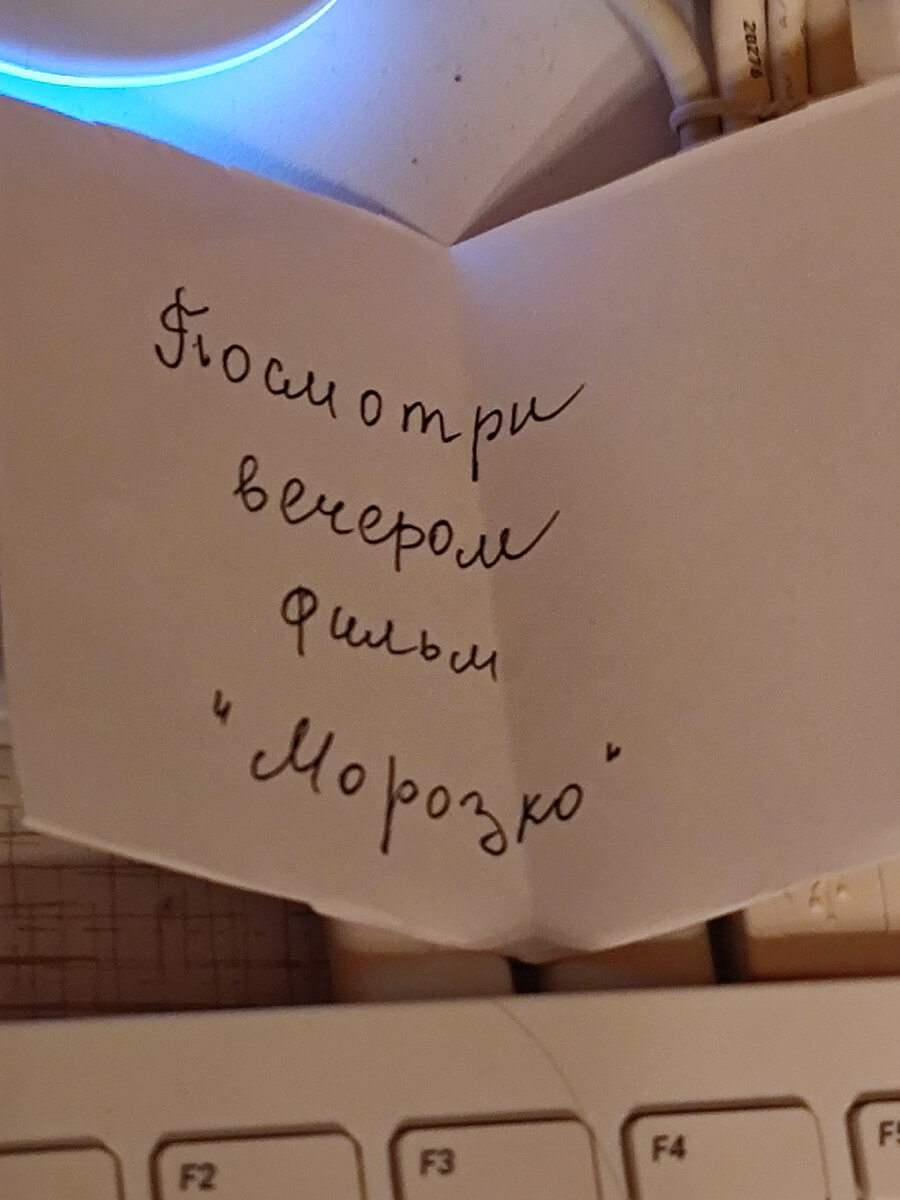 20276
Посмотри
вечером
фильм
"Морозко"
F2
F3
F4
F5